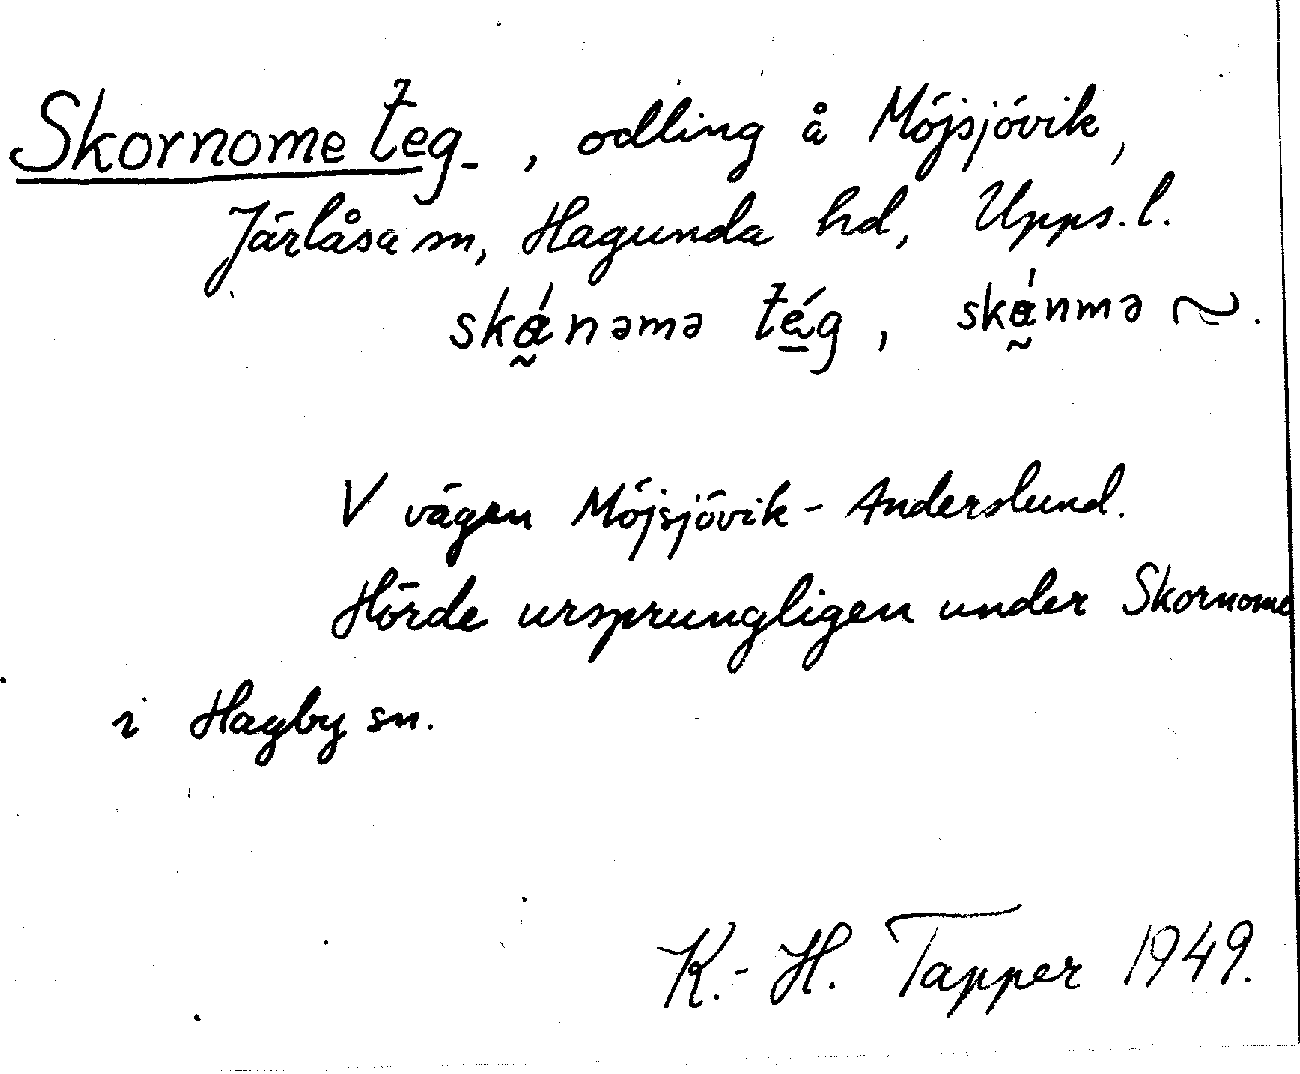 Skornome teg , odling å Möjsjövik,
Järlåsa sn, Hagunda hd, Upps. l.
skά̰nəmə té̱g , skά̰nmə ~.
V vägen Möjsjövik - Anderslund.
Hörde ursprungligen under Skornome
i Hagby sn.
K.-H. Tapper 1949.